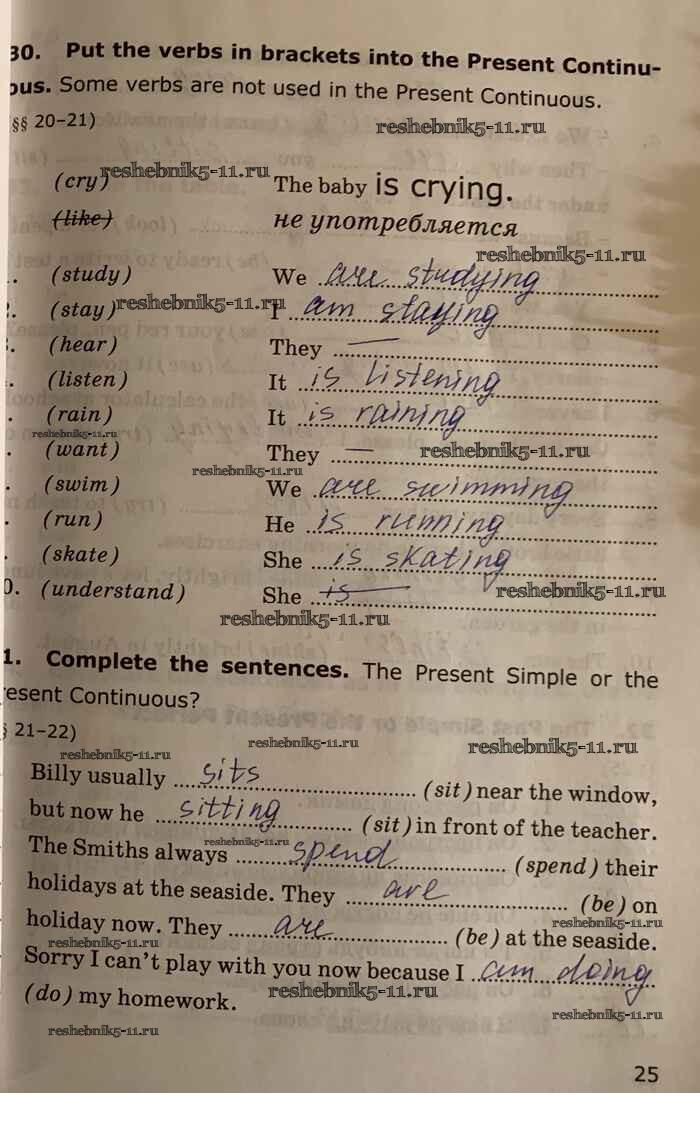 30. Put the verbs in brackets into the Present Continu-
ous. Some verbs are not used in the Present Continuous.
§§ 20–21)
reshebnik5-11.ru
(cry) reshebnik5-11.ru The baby is crying.
(like) не употребляется
reshebnik5-11.ru
(study) We are studying
(stay) reshebnik5-11.ru I am staying
(hear) They —
(listen) It is listening
(rain) It is raining
reshebnik5-11.ru
(want) They — reshebnik5-11.ru
reshebnik5-11.ru
(swim) We are swimming
(run) He is running
(skate) She is skating
0. (understand) She is reshebnik5-11.ru
reshebnik5-11.ru
1. Complete the sentences. The Present Simple or the
resent Continuous?
§ 21–22)
reshebnik5-11.ru reshebnik5-11.ru reshebnik5-11.ru
Billy usually sits (sit) near the window,
but now he sitting (sit) in front of the teacher.
reshebnik5-11.ru
The Smiths always spend (spend) their
holidays at the seaside. They are (be) on
reshebnik5-11.ru
holiday now. They are (be) at the seaside.
reshebnik5-11.ru
Sorry I can't play with you now because I am doing
(do) my homework. reshebnik5-11.ru
reshebnik5-11.ru
reshebnik5-11.ru
25